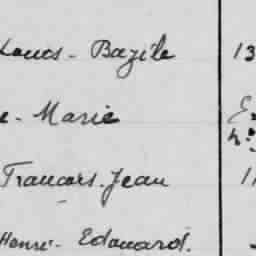 Louis - Bazile 13
e - Marie
Francois. Jean
Henri - Edouard.